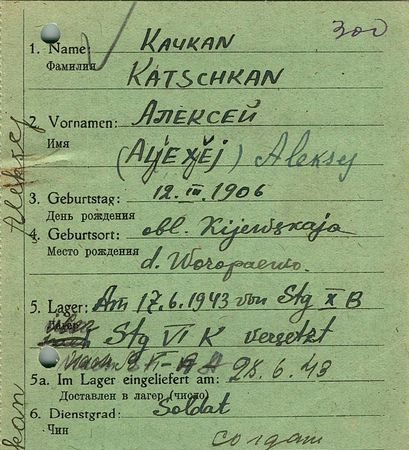 300
1. Name: Качкан
Фамилия
KATSCHKAN
2. Vornamen: Алексей
Имя
(Aljexěj) Aleksej
3. Geburtstag: 12. III. 1906
День рождения
4. Geburtsort: obl. Kijewskaja
Место рождения
d. Woropaewo.
5. Lager: Am 17.6.1943 von Stg X B
über Stg VI K versetzt
28.6.43
5a. Im Lager eingeliefert am:
Доставлен в лагерь (число)
6. Dienstgrad: Soldat
Чин
солдат
Aleksej
kan